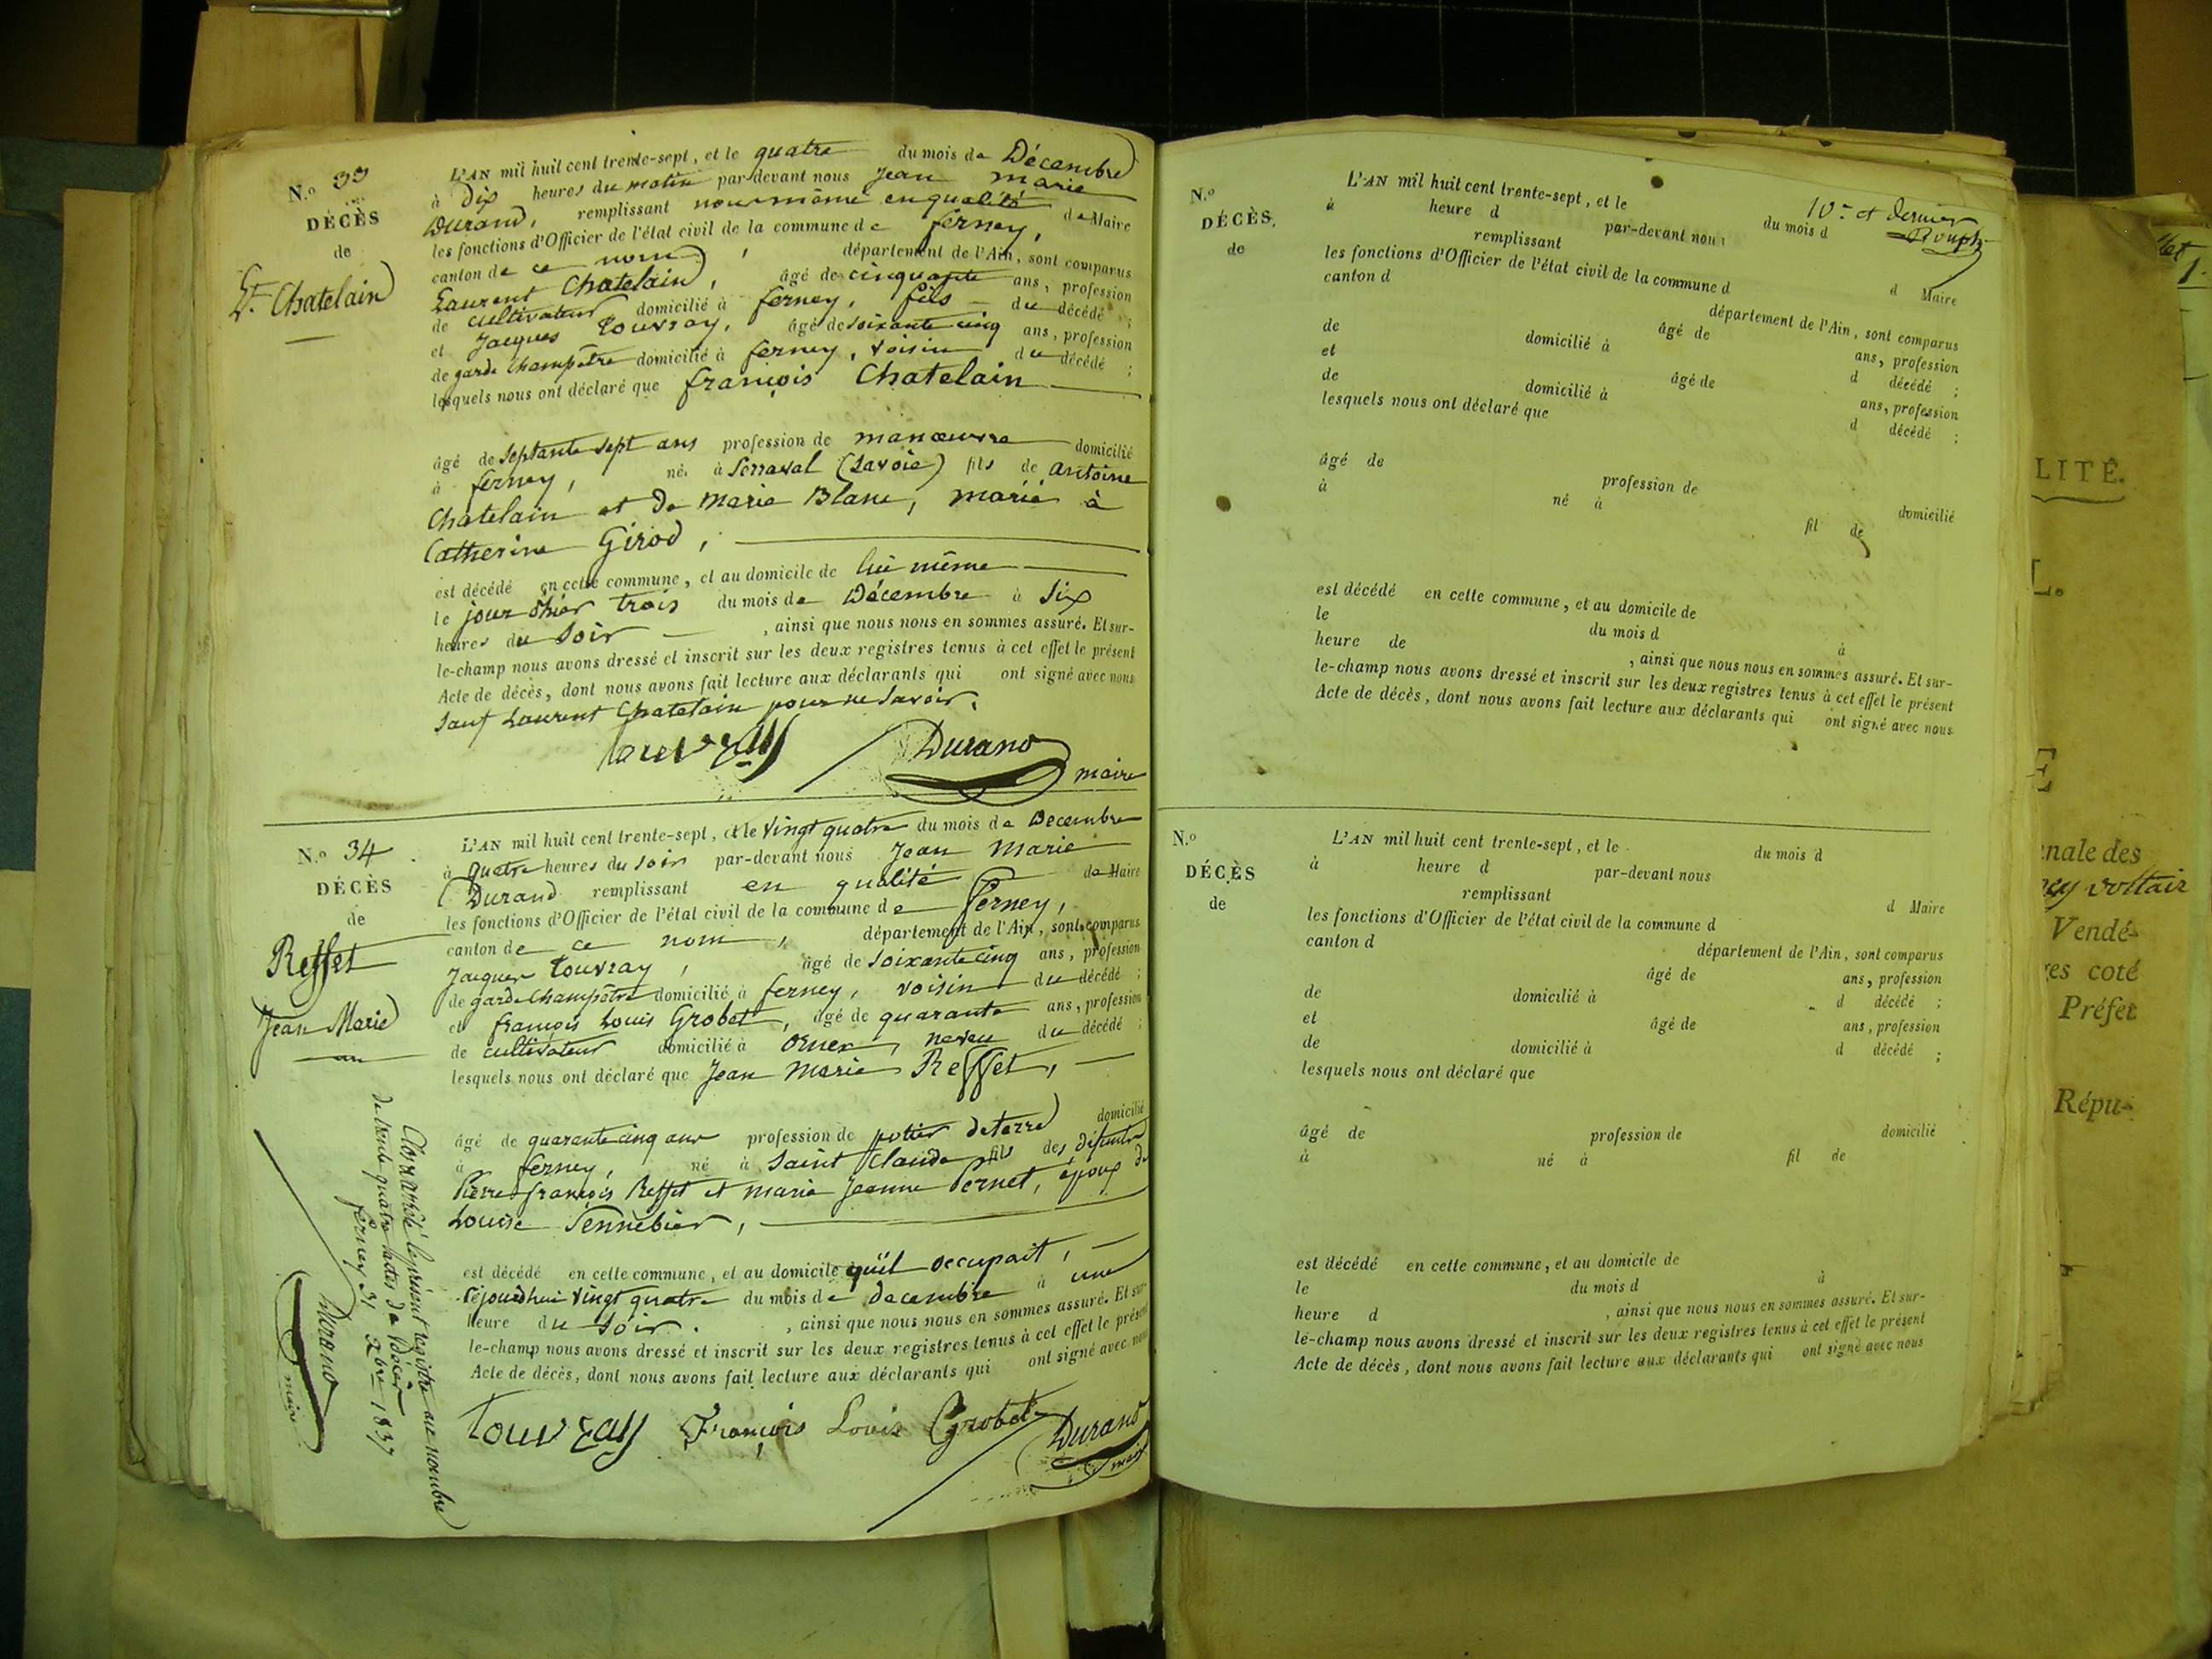 N.o 33
DÉCÈS
de
Chatelain
L'AN mil huit cent trente-sept, et le quatre du mois de Décembre
à Dix heures du matin par-devant nous Jean Marie
Durand, remplissant nous même en qualité de Maire
les fonctions d'Officier de l'état civil de la commune de ferney,
canton de ce nom, département de l'Ain, sont comparus
Laurent Chatelain, âgé de cinquante ans, profession
de cultivateur domicilié à ferney, fils du décédé ;
et Jacques Touvray, âgé de soixante cinq ans, profession
de garde Champêtre domicilié à ferney, voisin du décédé ;
lesquels nous ont déclaré que françois Chatelain
âgé de septante sept ans profession de manœuvre domicilié
à ferney, né à Serraval (Savoie) fils de antoine
Chatelain et de Marie Blanc, marié à
Catherine Girod,
est décédé en cette commune, et au domicile de lui même
le jour d'hier trois du mois de Décembre à Six
heures du Soir , ainsi que nous nous en sommes assuré. Et sur-
le-champ nous avons dressé et inscrit sur les deux registres tenus à cet effet le présent
Acte de décès, dont nous avons fait lecture aux déclarants qui ont signé avec nous
sauf Laurent Chatelain pour ne savoir.
Touvray Durand
maire
N.o 34
DÉCÈS
de
Reffet
Jean Marie
L'AN mil huit cent trente-sept, et le vingt quatre du mois de Decembre
à quatre heures du soir par-devant nous Jean Marie
Durand remplissant en qualité de Maire
les fonctions d'Officier de l'état civil de la commune de Ferney,
canton de ce nom, département de l'Ain, sont comparus
Jacques Touvray, âgé de soixante cinq ans, profession
de garde Champêtre domicilié à ferney, voisin du décédé ;
et françois Louis Grobet, âgé de quarante ans, profession
de cultivateur domicilié à Ornex, neveu du décédé ;
lesquels nous ont déclaré que Jean Marie Reffet,
âgé de quarante cinq ans profession de potier de terre domicilié
à ferney, né à Saint Claude fils des défunts
Pierre françois Reffet et marie Jeanne Pernet, époux de
Louise Sennebier,
est décédé en cette commune, et au domicile qu'il occupait,
le jourdhui vingt quatre du mois de decembre à une
heure du soir. , ainsi que nous nous en sommes assuré. Et sur-
le-champ nous avons dressé et inscrit sur les deux registres tenus à cet effet le présent
Acte de décès, dont nous avons fait lecture aux déclarants qui ont signé avec nous
Touvray François Louis Grobet Durand
maire
Clos arrêté le présent registre au nombre
de trente quatre actes de Décès
ferney 31 Xbre 1837
Durand
maire
10e et dernier
N.o
DÉCÈS.
de
L'AN mil huit cent trente-sept, et le du mois d
à heure d par-devant nous
remplissant d Maire
les fonctions d'Officier de l'état civil de la commune d
canton d département de l'Ain, sont comparus
âgé de ans, profession
de domicilié à d décédé ;
et âgé de ans, profession
de domicilié à d décédé ;
lesquels nous ont déclaré que
âgé de profession de domicilié
à né à fil de
est décédé en cette commune, et au domicile de
le du mois d à
heure de , ainsi que nous nous en sommes assuré. Et sur-
le-champ nous avons dressé et inscrit sur les deux registres tenus à cet effet le présent
Acte de décès, dont nous avons fait lecture aux déclarants qui ont signé avec nous
N.o
DÉCÈS
de
L'AN mil huit cent trente-sept, et le du mois d
à heure d par-devant nous
remplissant d Maire
les fonctions d'Officier de l'état civil de la commune d
canton d département de l'Ain, sont comparus
âgé de ans, profession
de domicilié à d décédé ;
et âgé de ans, profession
de domicilié à d décédé ;
lesquels nous ont déclaré que
âgé de profession de domicilié
à né à fil de
est décédé en cette commune, et au domicile de
le du mois d à
heure d , ainsi que nous nous en sommes assuré. Et sur-
le-champ nous avons dressé et inscrit sur les deux registres tenus à cet effet le présent
Acte de décès, dont nous avons fait lecture aux déclarants qui ont signé avec nous
LITÉ.
L.
E
nale des
ney voltair
Vendé-
res coté
Préfet
Répu-